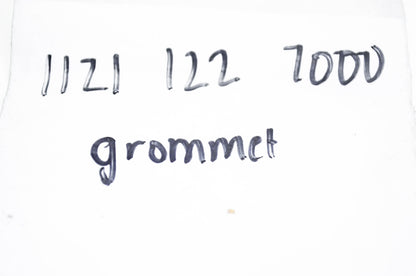 1121 122 7000
grommet